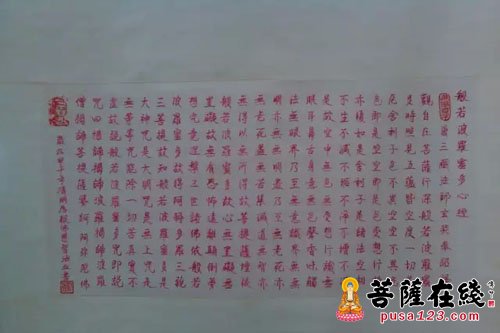 般若波羅蜜多心經
唐三藏法師玄奘奉詔譯
觀自在菩薩行深般若波羅蜜
多時照見五蘊皆空度一切苦
厄舍利子色不異空空不異色
色即是空空即是色受想行識
亦復如是舍利子是諸法空相
不生不滅不垢不淨不增不減
是故空中無色無受想行識無
眼耳鼻舌身意無色聲香味觸
法無眼界乃至無意識界無無
明亦無無明盡乃至無老死亦
無老死盡無苦集滅道無智亦
無得以無所得故菩提薩埵依
般若波羅蜜多故心無罣礙無
罣礙故無有恐怖遠離顛倒夢
想究竟涅槃三世諸佛依般若
波羅蜜多故得阿耨多羅三藐
三菩提故知般若波羅蜜多是
大神咒是大明咒是無上咒是
無等等咒能除一切苦真實不
虛故說般若波羅蜜多咒即說
咒曰揭諦揭諦波羅揭諦波羅
僧揭諦菩提薩婆訶 阿彌陀佛
歲在甲午
菩薩在线
pusa123.com